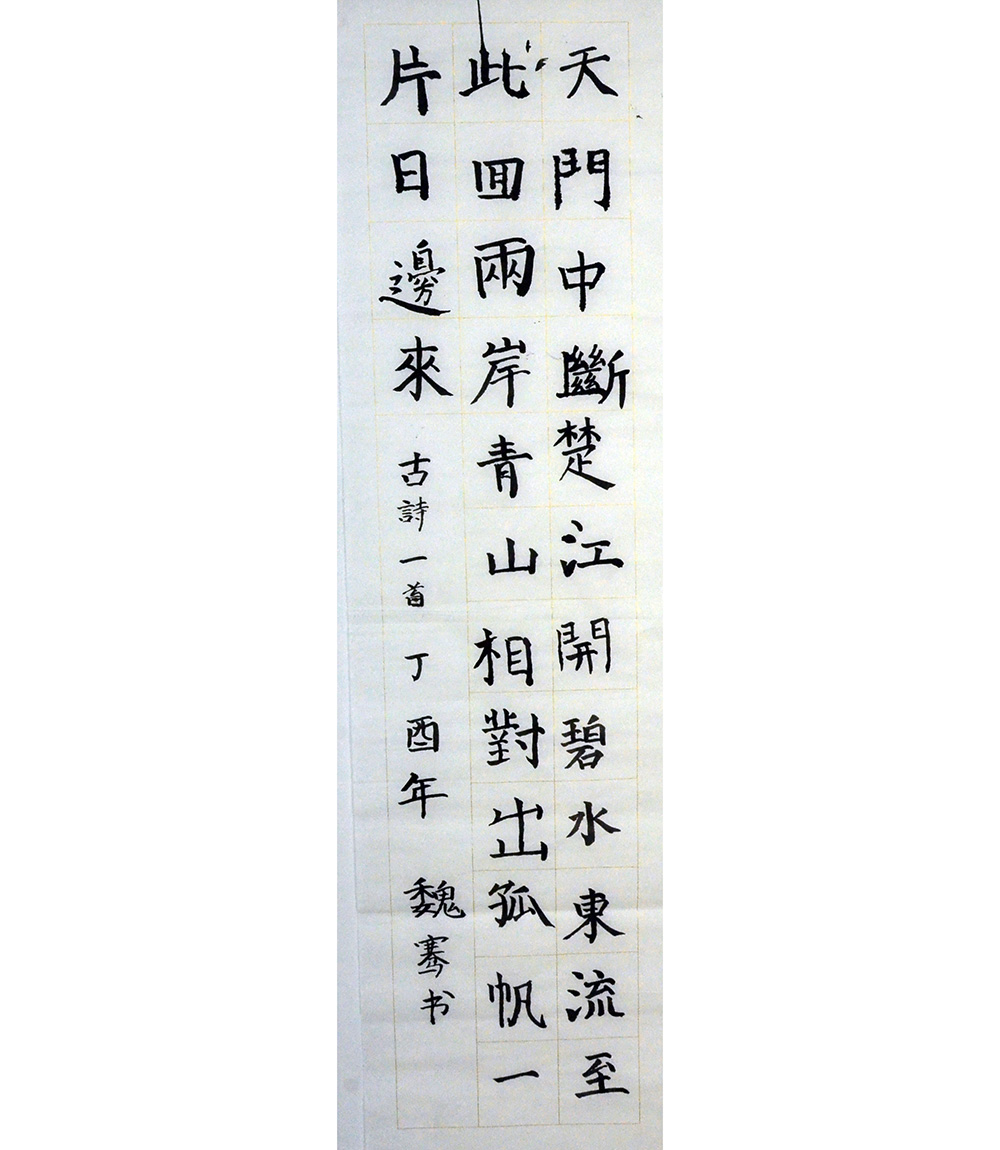 天門中斷楚江開碧水東流至
此囬兩岸青山相對出孤帆一
片日邊來 古詩一首 丁酉年 魏骞书